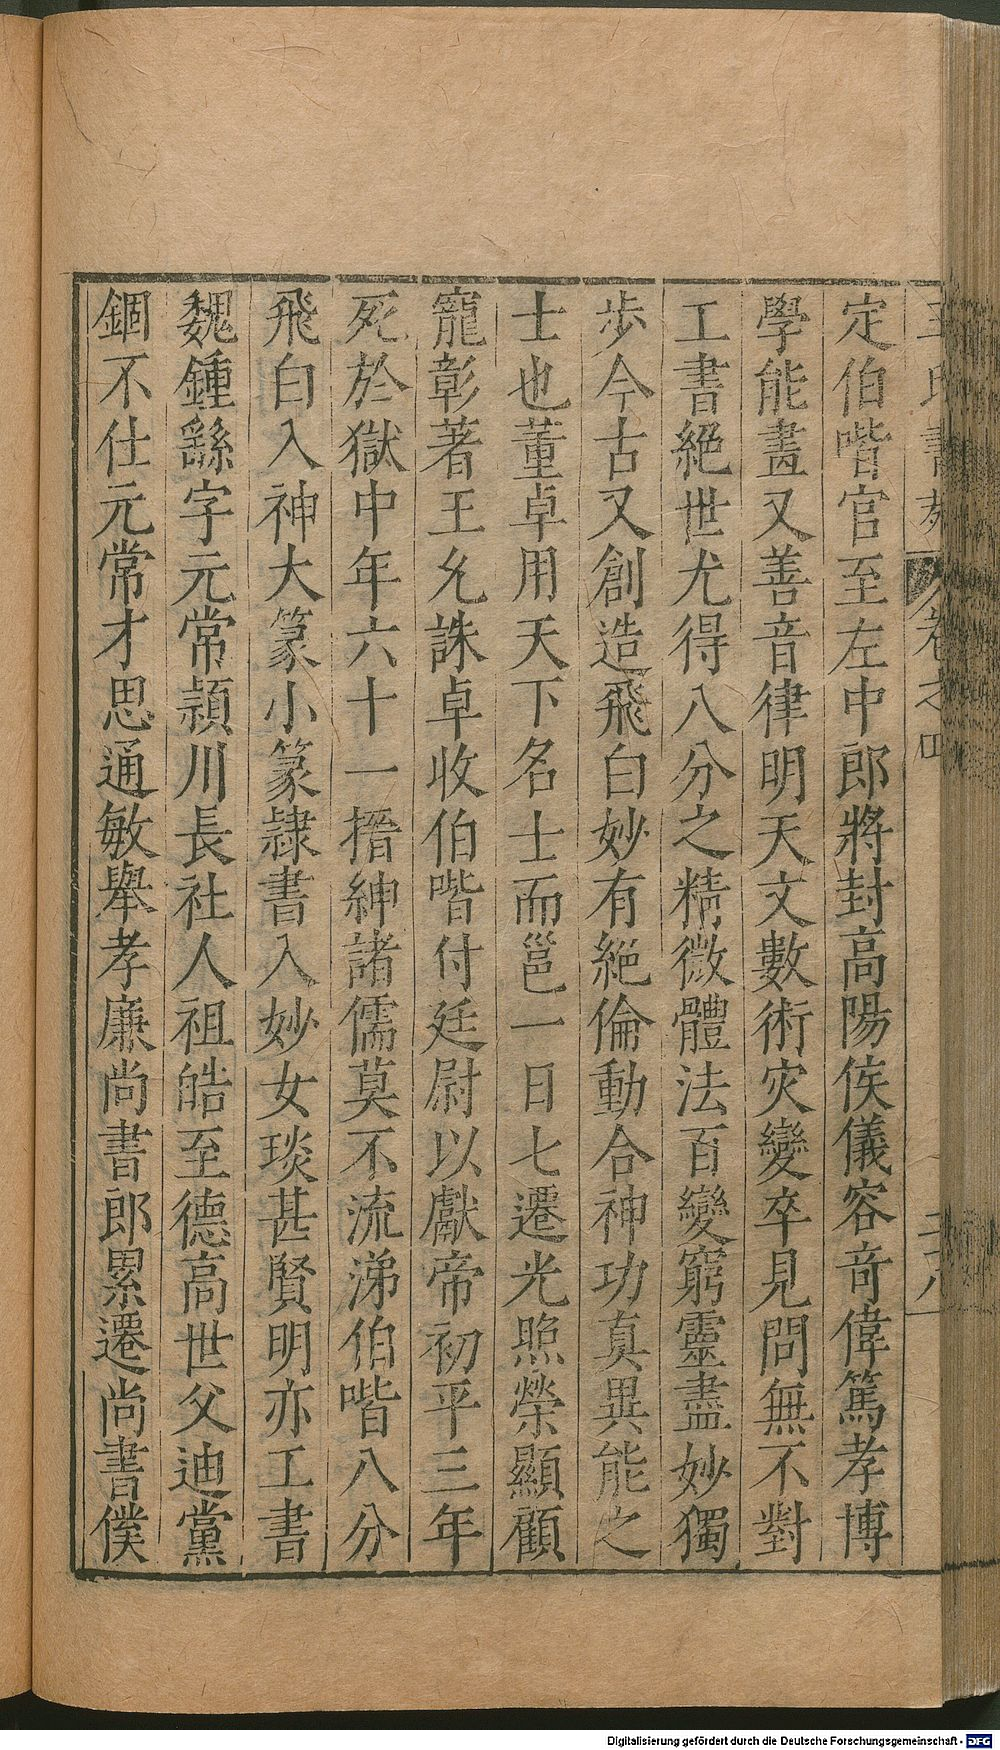 王氏書苑 卷之四 二八
定伯喈官至左中郎將封高陽侯儀容奇偉篤孝博
學能畫又善音律明天文數術灾變卒見問無不對
工書絕世尤得八分之精微體法百變窮靈盡妙獨
步今古又創造飛白妙有絕倫動合神功真異能之
士也董卓用天下名士而邕一日七遷光照榮顯顧
寵彰著王允誅卓收伯喈付廷尉以獻帝初平三年
死於獄中年六十一搢紳諸儒莫不流涕伯喈八分
飛白入神大篆小篆隷書入妙女琰甚賢明亦工書
魏鍾繇字元常潁川長社人祖皓至德高世父迪黨
錮不仕元常才思通敏舉孝廉尚書郎累遷尚書僕
Digitalisierung gefördert durch die Deutsche Forschungsgemeinschaft - DFG